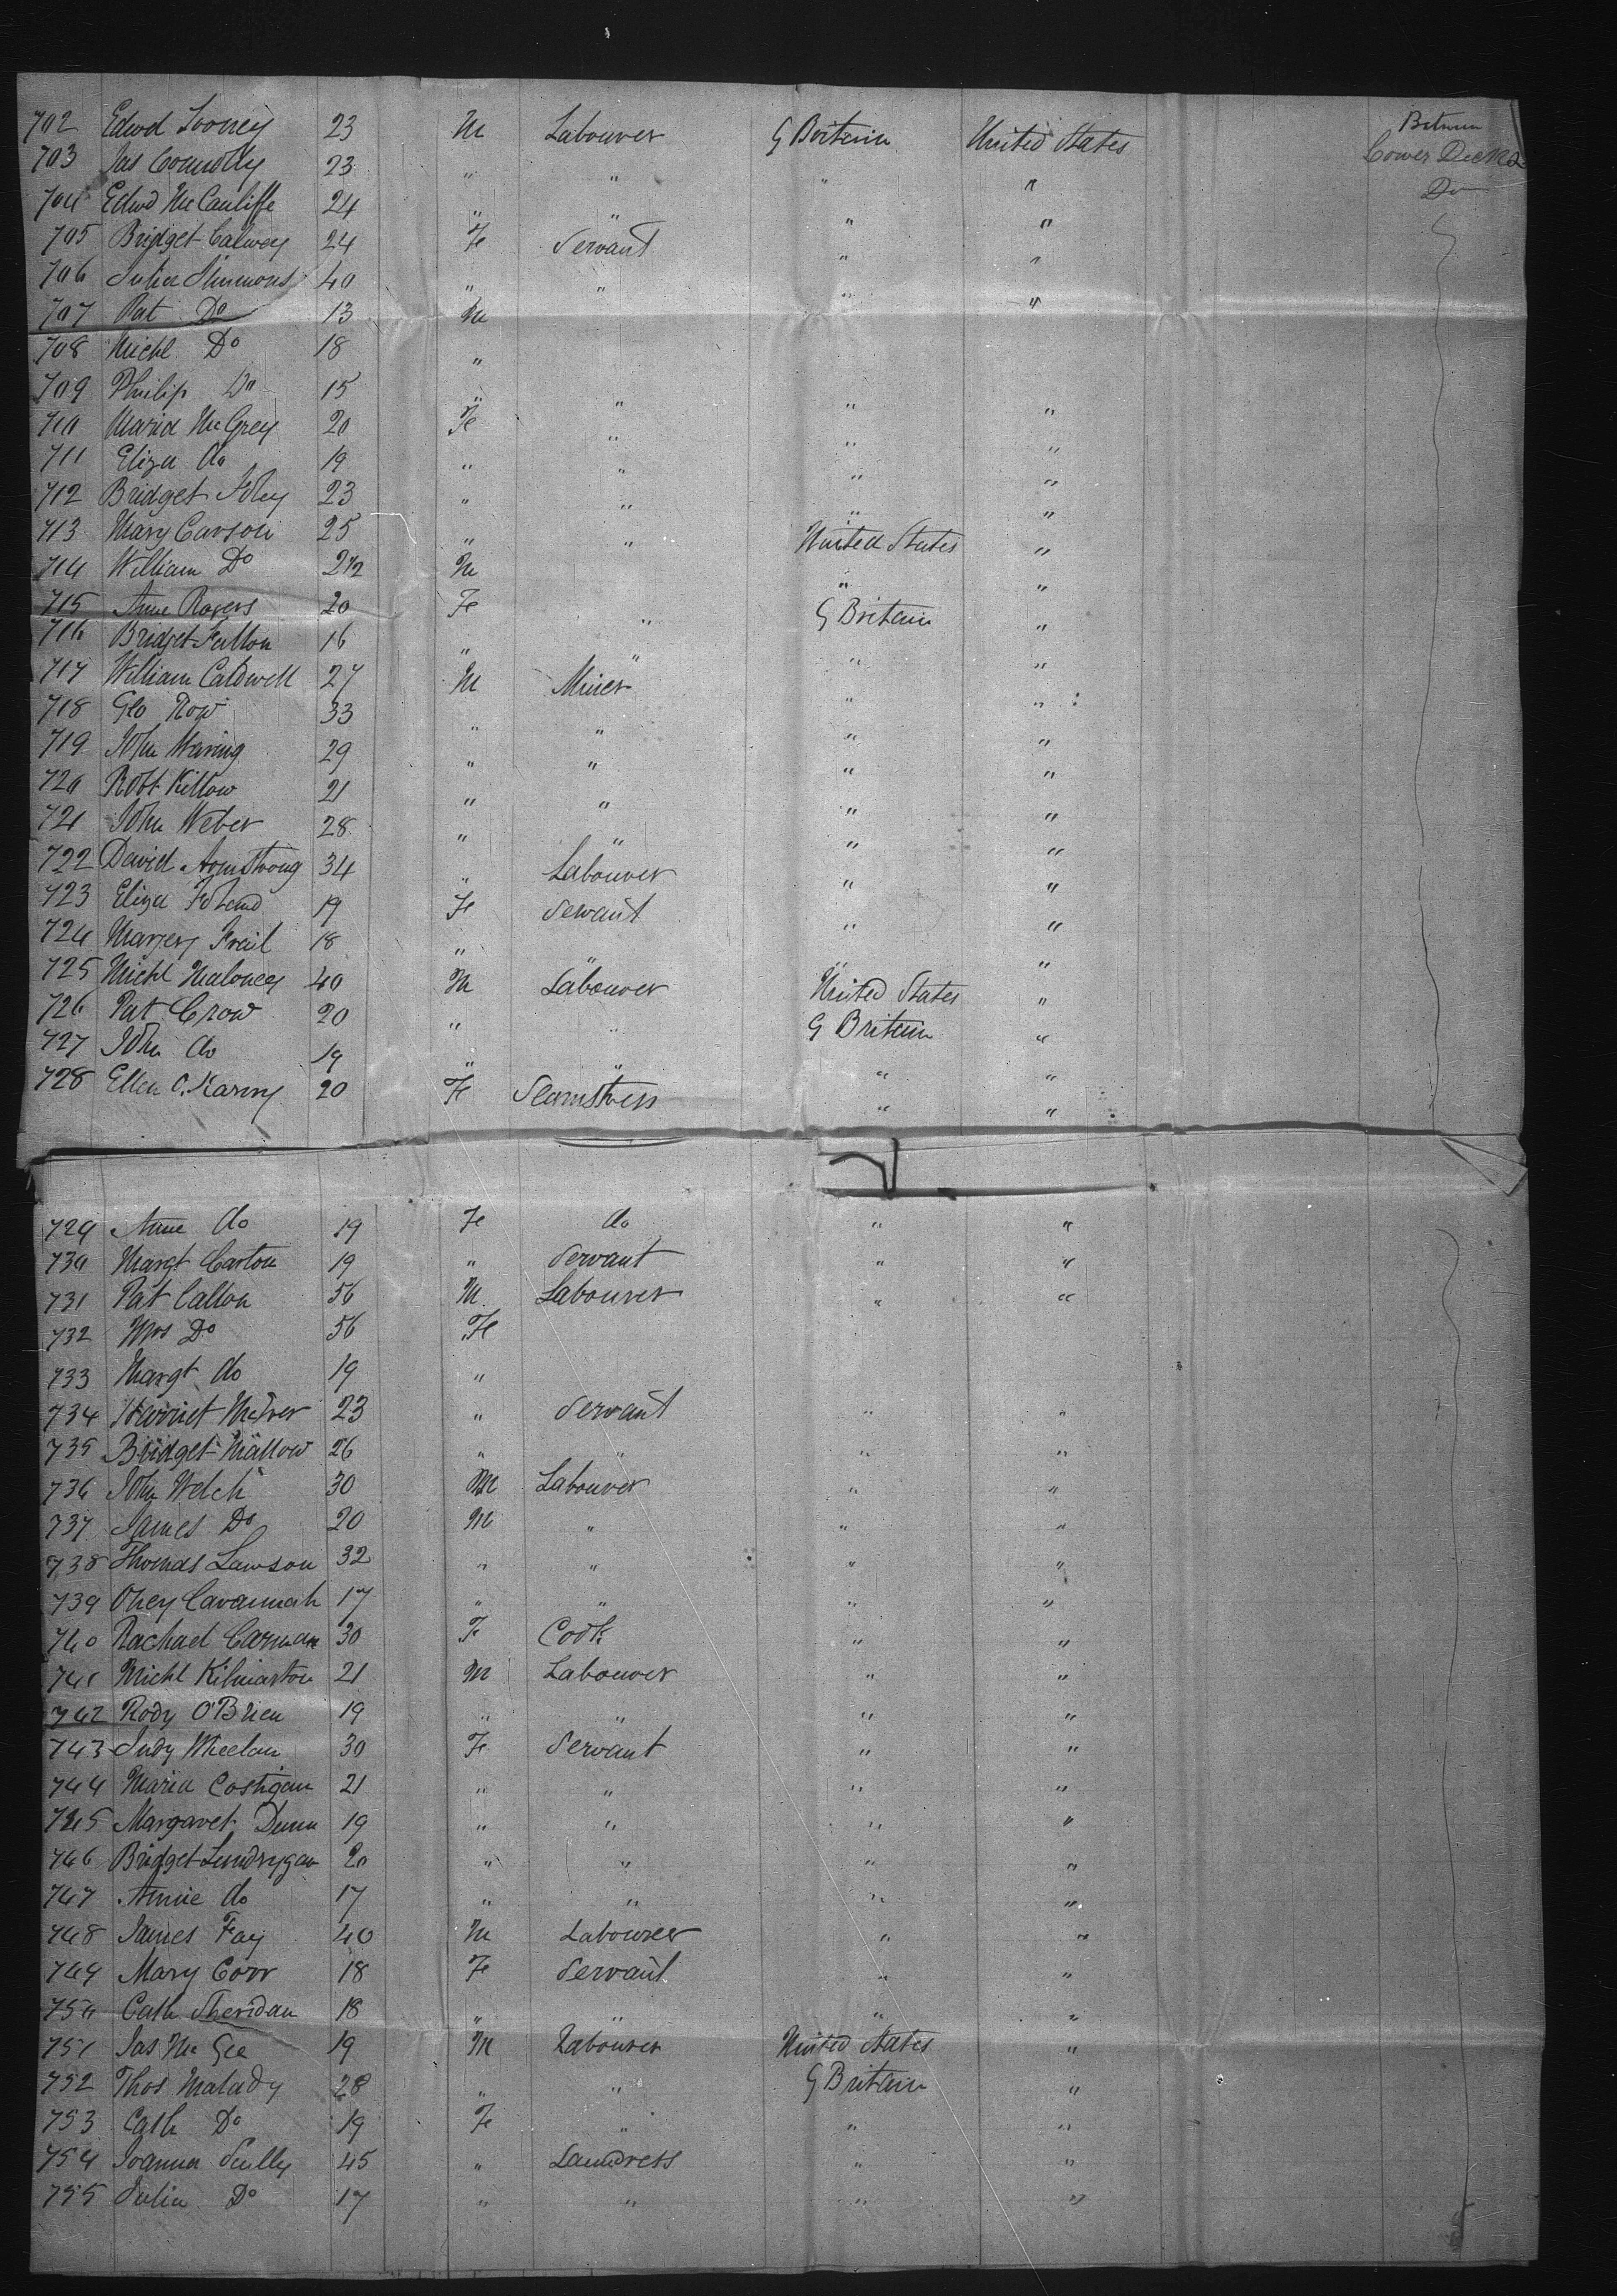 702 Edwd Looney 23 M Labourer G Britain United States Between
703 Jas Connolly 23 " " " " Lower Decks
704 Edwd McCauliffe 24 " " " " Do
705 Bridget Calwey 24 Fe Servant " "
706 Julia Simmons 40 " " " "
707 Pat Do 13 M
708 Michl Do 18 "
709 Philip Do 15 " " " "
710 Maria McGrey 20 Fe " " "
711 Eliza do 19 " " " "
712 Bridget Foley 23 " " " "
713 Mary Carson 25 " " United States "
714 William Do 2 1/2 M " "
715 Anne Rogers 20 Fe " G Britain "
716 Bridget Fallon 16 " " " "
717 William Caldwell 27 M Miner " "
718 Geo Row 33 " " " "
719 John Waring 29 " " " "
720 Robt Killow 21 " " " "
721 John Weber 28 " " " "
722 David Armstrong 34 " Labourer " "
723 Eliza Foland 19 Fe Servant " "
724 Margery Frail 18 " " " "
725 Michl Maloney 40 M Labourer United States "
726 Pat Crow 20 " " G Britain "
727 John do 19 " " " "
728 Ellen O. Karny 20 Fe Seamstress " "
729 Anne do 19 Fe do " "
730 Margt Carton 19 " Servant " "
731 Pat Callon 56 M Labourer " "
732 Mrs Do 56 Fe
733 Margt do 19 "
734 Harriet McIver 23 " Servant " "
735 Bridget Mallow 26 " " " "
736 John Welch 30 M Labourer " "
737 James Do 20 M " " "
738 Thomas Lawson 32 " " " "
739 Oney Cavannah 17 " " " "
740 Rachael Carman 30 Fe Cook " "
741 Michl Kilmarton 21 M Labourer " "
742 Rody O'Brien 19 " " " "
743 Judy Wheelan 30 Fe Servant " "
744 Maria Costigan 21 " " " "
745 Margaret Dunn 19 " " " "
746 Bridget Lundrygan 20 " " " "
747 Annie do 17 " " " "
748 James Fay 40 M Labourer " "
749 Mary Corr 18 Fe Servant " "
750 Cath Sheridan 18 " " " "
751 Jas McGee 19 M Labourer United States "
752 Thos Malady 28 " " G Britain "
753 Cath Do 19 Fe " " "
754 Joanna Scully 45 " Laundress " "
755 Julia Do 17 " " " "